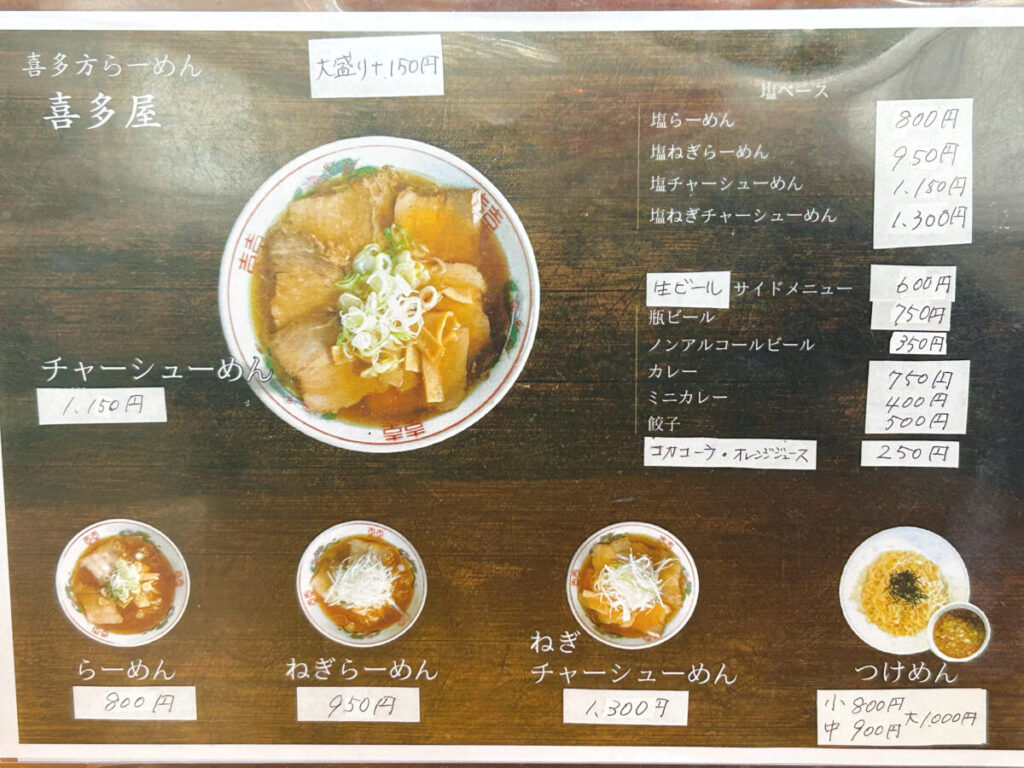 喜多方らーめん
喜多屋
大盛り+150円
チャーシューめん
1.150円
塩ベース
塩らーめん 800円
塩ねぎらーめん 950円
塩チャーシューめん 1.150円
塩ねぎチャーシューめん 1.300円
生ビール サイドメニュー 600円
瓶ビール 750円
ノンアルコールビール 350円
カレー 750円
ミニカレー 400円
餃子 500円
コカコーラ・オレンジジュース 250円
らーめん
800円
ねぎらーめん
950円
ねぎ
チャーシューめん
1.300円
つけめん
小 800円
中 900円 大 1.000円